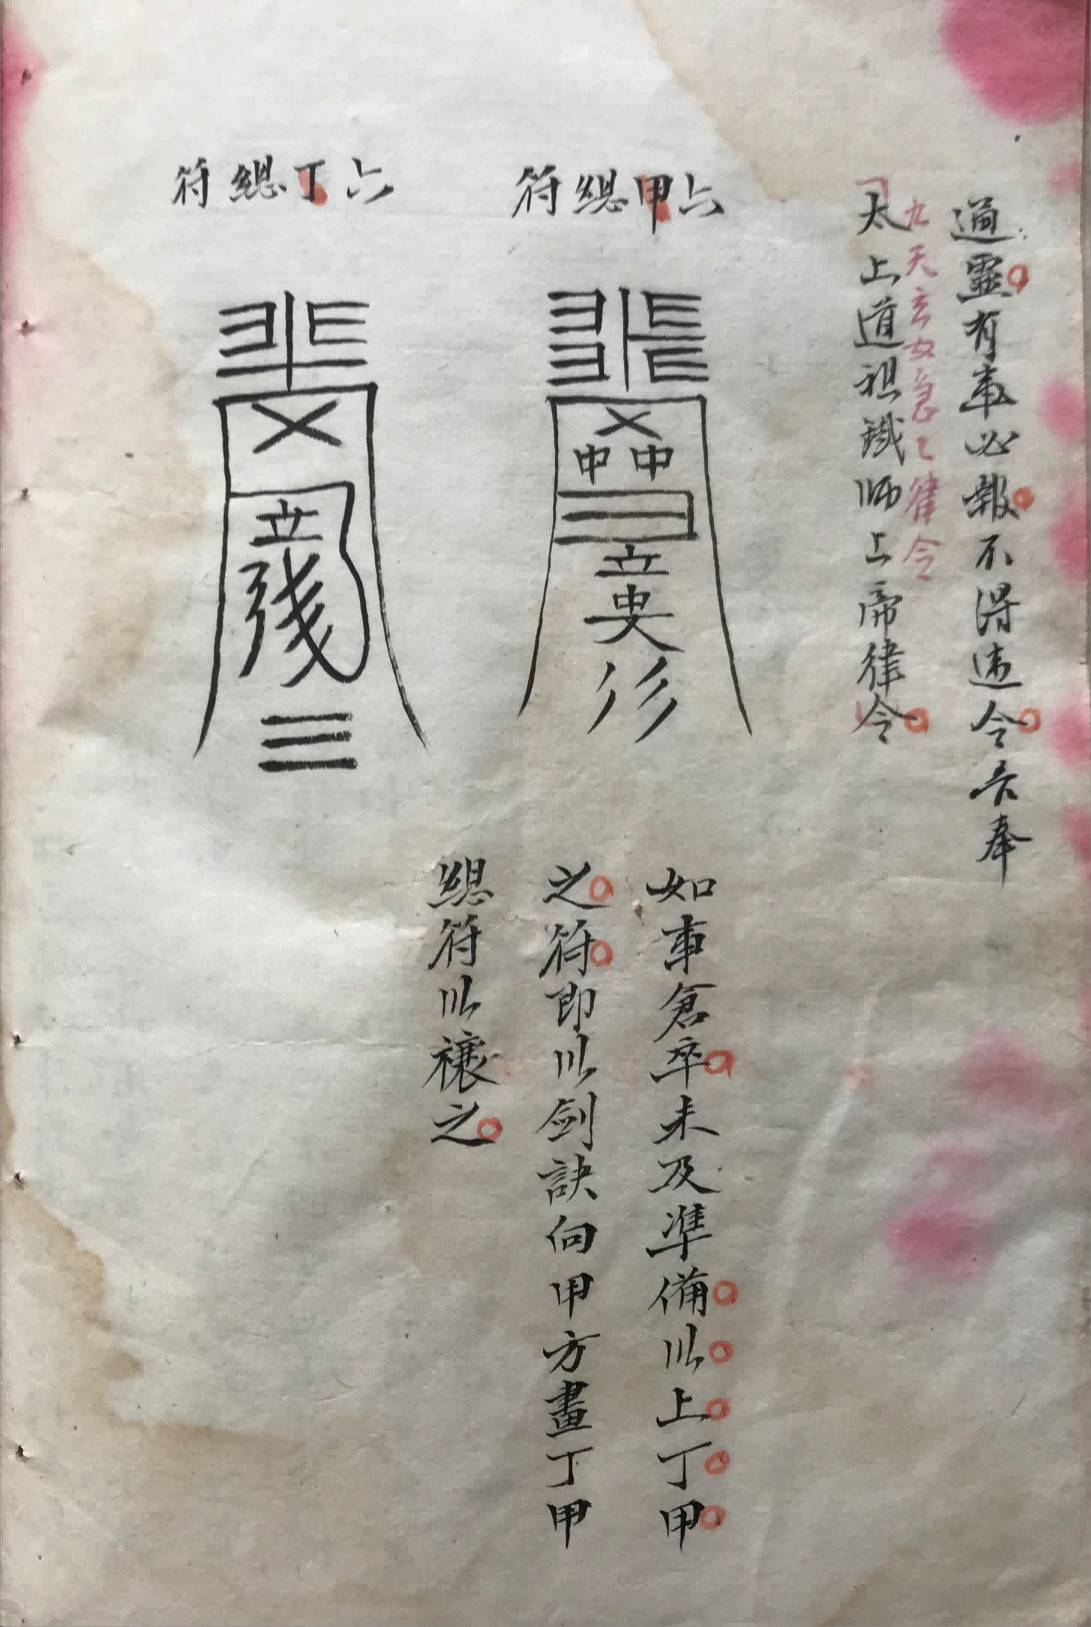 通靈有事必報不得違令吾奉
九天玄女急々律令
太上道祖鐵師上帝律令
六甲總符
中中
立
六丁總符
立
如事倉卒未及準備以上丁甲
之符即以剑訣向甲方畫丁甲
總符以禳之